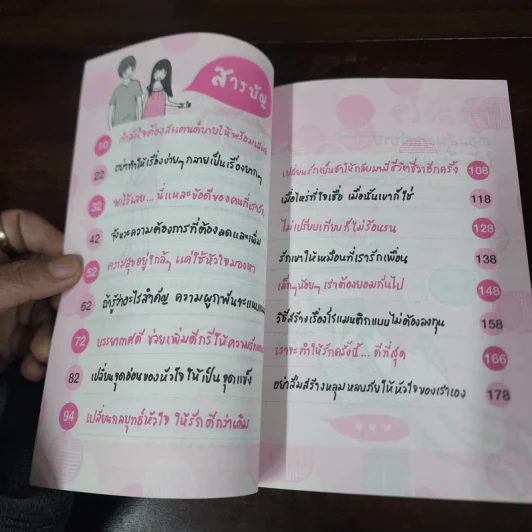 สารบัญ
10 ถ้ามีใจต้องสบตนต์บายให้พร้อม
22 อย่าทำให้เรื่องง่ายๆ กลายเป็นเรื่องยากๆ
32 จดไว้เลย... นี่แหละข้อดีของคนที่เรารัก
42 จังหวะความต้องการที่ต้องลดและเพิ่ม
52 ความสุขอยู่ใกล้ๆ แค่ใช้หัวใจมองหา
62 ถ้ารู้ว่าอะไรสำคัญ ความผูกพันจะแน่น
72 บรรยากาศดี ช่วยเพิ่มดีกรีให้ความรัก
82 เปลี่ยนจุดอ่อนของหัวใจ ให้เป็นจุดแข็ง
94 เปลี่ยนกลยุทธ์หัวใจ ให้รักดีกว่าเดิม
เปลี่ยนรักเย็นชาให้กลับมามีชีวิตชีวาอีกครั้ง 108
เมื่อไหร่ที่ใจเชื่อ เมื่อนั้นเขาก็ใช่ 118
ไม่เปรียบเทียบก็ไม่ร้อนรน 128
รักเขาให้เหมือนที่เรารักเพื่อน 138
เล็กๆน้อยๆ เราต้องยอมกันไป 148
วิธีสร้างเรื่องโรแมนติกแบบไม่ต้องลงทุน 158
เราจะทำให้รักครั้งนี้... ดีที่สุด 166
อย่าลืมสร้างหลุมหลบภัยให้หัวใจของเราเอง 178